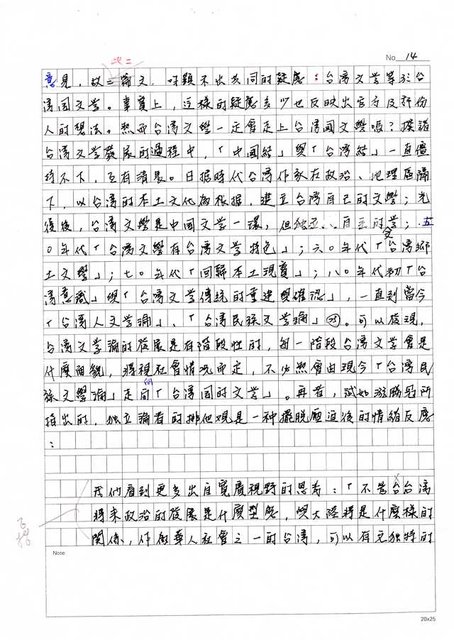 此二
No. 14
意見，故二論文，呼顯不出共同的疑慮：台灣文學等於台
灣國文學。事實上，這樣的疑慮至少也反映出官方及部份
人的想法。然而台灣文學一定會走上台灣國文學嗎？摸諸
台灣文學發展的過程中，「中國結」與「台灣結」一直僵
持不下，互有消長。日據時代台灣作家在政治、地理區隔
下，以台灣的本土文化為根據，建立台灣自己的文學；光
復後，台灣文學是中國文學一環，但獨立、自主的文學；五
〇年代「台灣文學有台灣文學特色」；六〇年代「台灣鄉
土文學」；七〇年代「回歸本土現實」；八〇年代初「台
灣意識」與「台灣文學傳統的重建與確認」，一直到當今
「台灣人文學論」、「台灣民族文學論」。可以發現，
台灣文學論的發展是有階段性的，每一階段台灣文學會是
什麼面貌，將視社會情況而定，不必然會由現今「台灣民
族文學論」走向「台灣國的文學」。再者，誠如游勝冠所
指出的，獨立論者的排他觀是一種擺脫壓迫後的情緒反應
：
我們看到更多出自寬廣視野的思考：「不管台灣
將來政治的發展是什麼型態，與大陸將是什麼樣的
關係，作為華人社會之一的台灣，可以有它獨特的
Note
20x25